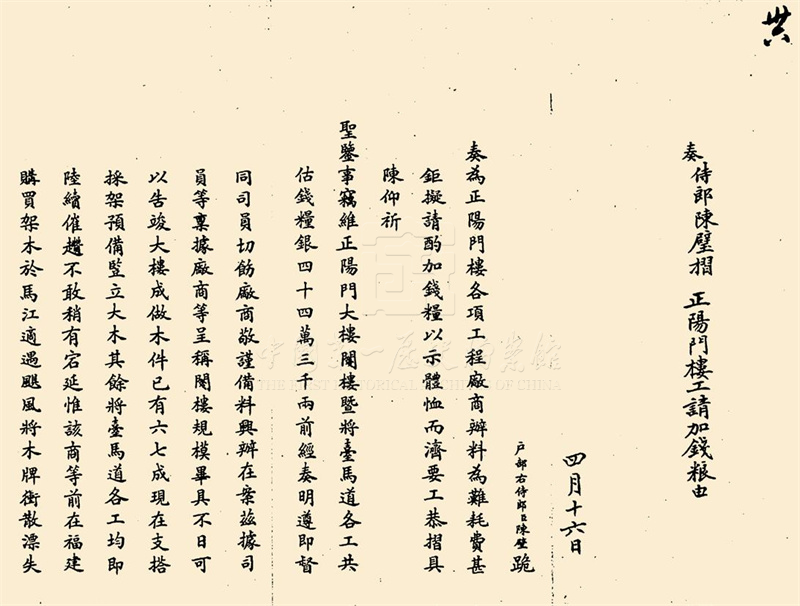 共
奏
侍郎陳璧摺 正陽門樓工請加錢粮由
四月十六日
户部右侍郎臣陳璧跪
奏為正陽門樓各項工程廠商辦料為難耗費甚
鉅擬請酌加錢糧以示體恤而濟要工恭摺具
陳仰祈
聖鑒事竊維正陽門大樓閣樓暨將臺馬道各工共
估錢糧銀四十四萬三千兩前經奏明遵即督
同司員切飭廠商敬謹備料興辦在案茲據司
員等稟據廠商等呈稱閣樓規模畢具不日可
以告竣大樓成做木件已有六七成現在支搭
採架預備豎立大木其餘將臺馬道各工均即
陸續催趲不敢稍有宕延惟該商等前在福建
購買架木於馬江適遇颶風將木牌衝散漂失
中國第一歷史檔案館
THE FIRST HISTORICAL ARCHIVES OF CHINA